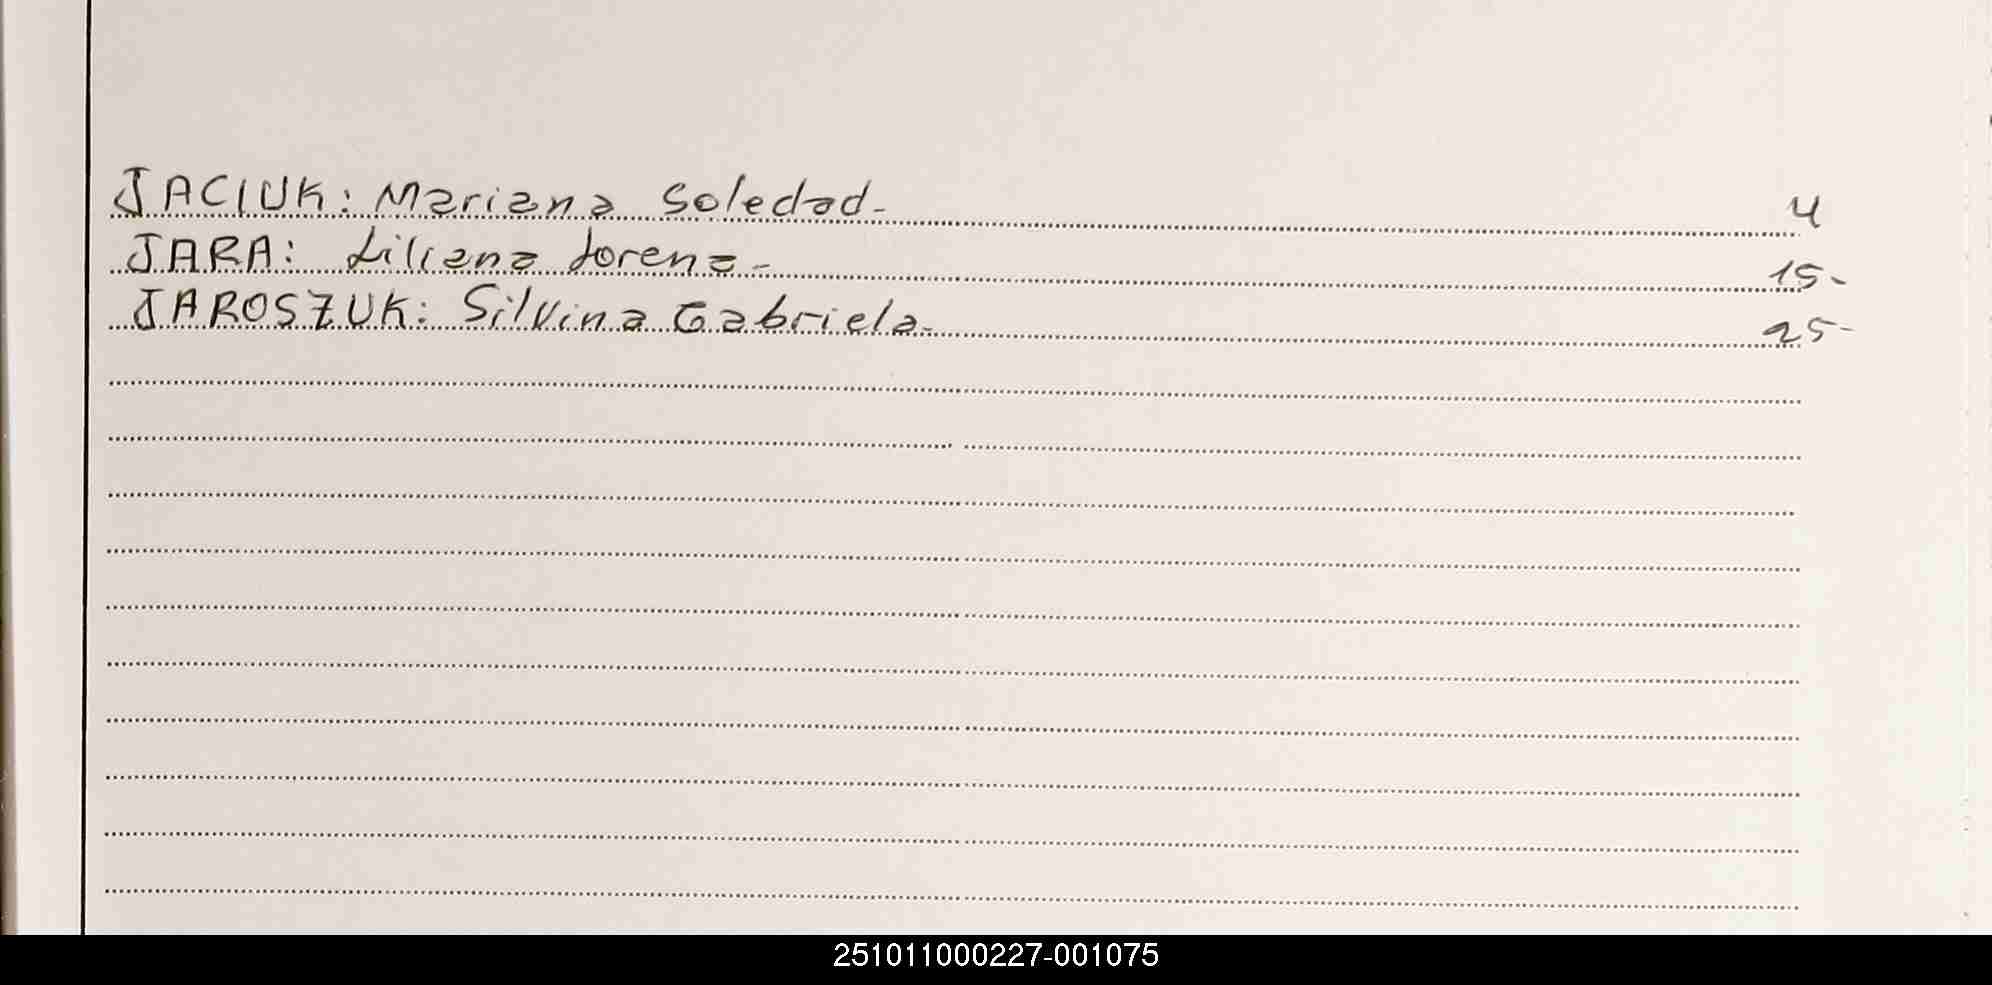 JACIUK: Mariana Soledad- 4
JARA: Liliana Lorena- 15-
JAROSZUK: Silvina Gabriela- 25-
251011000227-001075